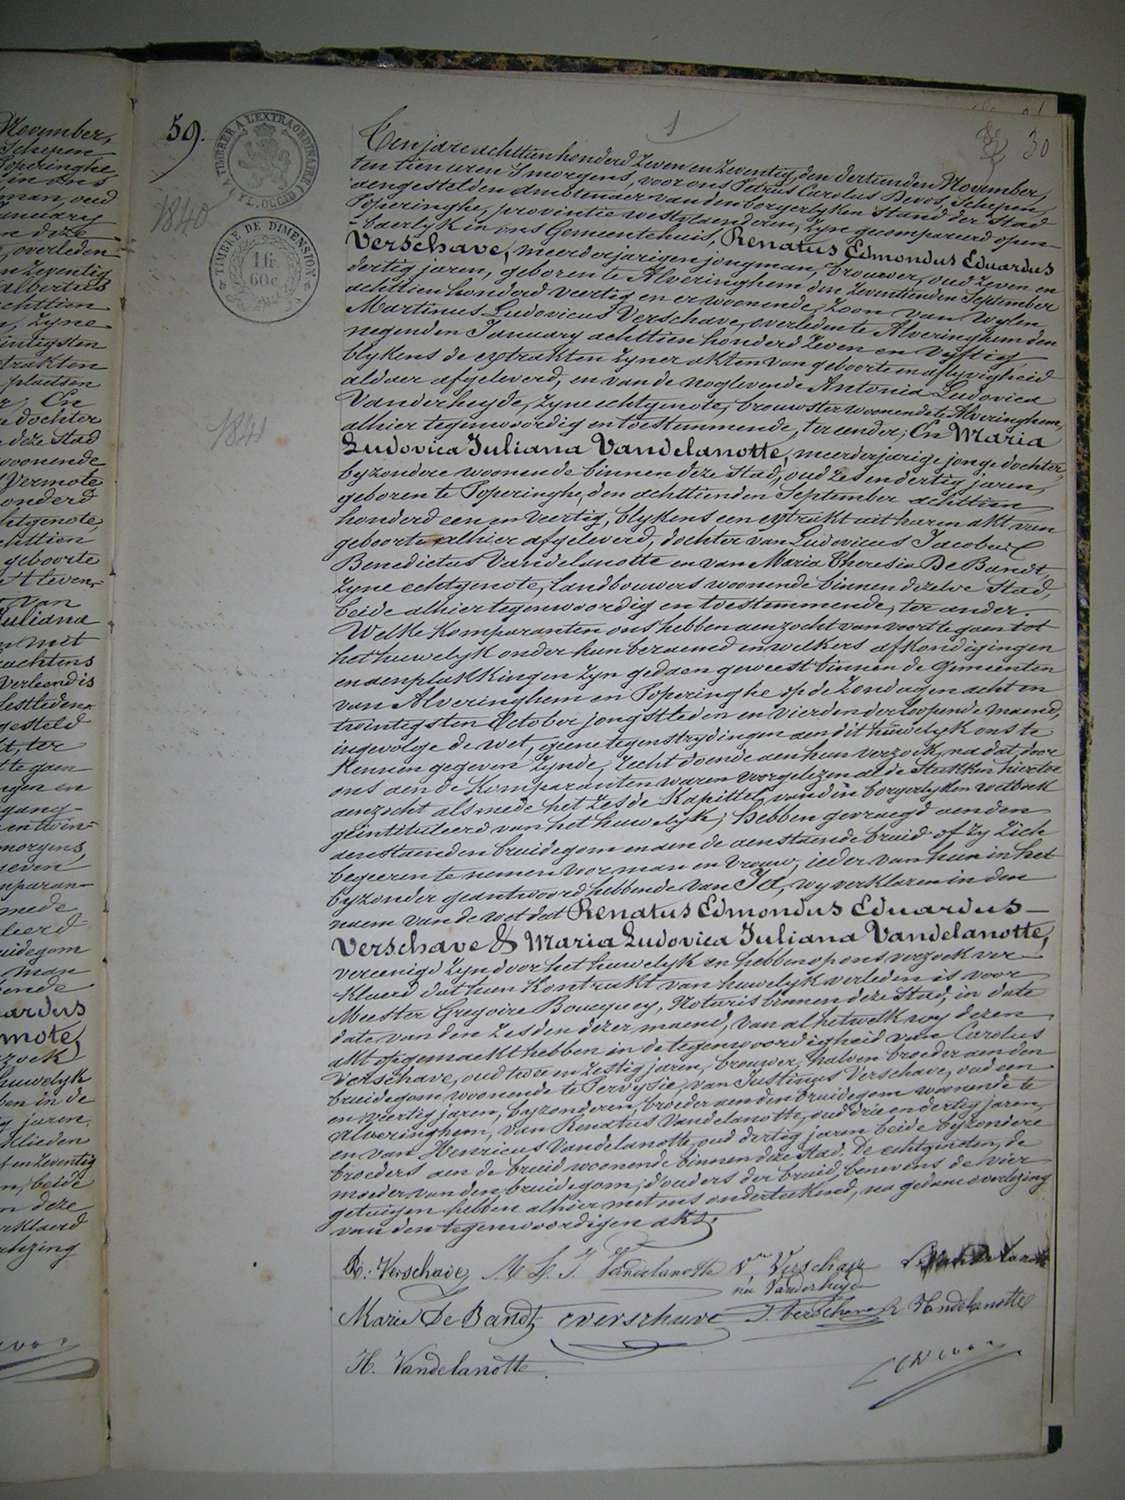 November,
Schepen
Poperinghe,
in ons
man, oud
January
en deze
overleden
en Zeventig
Albertus
achttien
Zyne
twintigsten
trakten
plaetsen
En
dochter
deze Stad
woonende
Vermote
honderd
echtgenote
achttien
geboorte
Stleven-
van
Juliana
en met
krachtens
verleend is
jestleden
gesteld
ter
te gaen
ngen en
gang-
en twin-
morgens,
geven
mparan-
mede
leerd
uidegom
man
bende
ardus
mote,
zoek
huwelyk
ben in de
ig jaren,
klieden
f en Zeventig
en, beide
en deze
erklaerd
erlezing
59.
1 30
TIMBRER A L'EXTRAORDINAIRE
FL. OCCID.
TIMBRE DE DIMENSION
1 fr.
60 c
1840
1841
Ten jare achttien honderd Zeven en Zeventig, den dertienden November,
ten tien uren S'morgens, voor ons Petrus Carolus Devos, Schepen,
aengestelden Ambtenaer van den borgerlyken Stand der Stad
Poperinghe, provintie westvlaenderen, Zyn gecompareerd open-
baerlyk in ons Gemeentehuis, Renatus Edmondus Eduardus
Verschave, meerderjarigen jongman, brouwer, oud Zeven en
dertig jaren, geboren te Alveringhem den Zeventienden September
achttien honderd veertig en er woonende, Zoon van wylen
Martinus Ludovicus Verschave, overleden te Alveringhem den
negenden January achttien honderd Zeven en vyftig
blykens de extrakten Zyner akten van geboorte en aflyvigheid
aldaer afgeleverd, en van de noglevende Antonia Ludovica
Vanderheyde, Zyne echtgenote, brouwster woonende te Alveringhem,
alhier tegenwoordig en toestemmende, ter eender; En Maria
Ludovica Juliana Vandelanotte, meerderjarige jonge dochter,
byzondere woonende binnen deze Stad, oud Zes en dertig jaren,
geboren te Poperinghe, den achttienden September achttien
honderd een en veertig, blykens een extrakt uit haren akt van
geboorte alhier afgeleverd, dochter van Ludovicus Jacobus
Benedictus Vandelanotte en van Maria Theresia De Bandt,
Zyne echtgenote, landbouwers woonende binnen dezelve Stad,
beide alhier tegenwoordig en toestemmende, ter ander.
Welke Komparanten ons hebben aenzocht van voort te gaen tot
het huwelyk onder hun beraemd en welkers afkondigingen
en aenplakkingen Zyn gedaen geweest binnen de Gemeenten
van Alveringhem en Poperinghe op de Zondagen acht en
twintigsten October jongstleden en vierden der loopende maend,
ingevolge de wet, geene tegenstrydingen aen dit huwelyk ons te
Kennen gegeven Zynde, recht doende aen hun verzoek, na dat door
ons aen de Komparanten waren voorgelezen al de Stukken hiertoe
aenzocht alsmede het Zesde Kapittel van den borgerlyken wetboek
geintituleerd van het huwelyk; Hebben gevraegd aen den
aenstaenden bruidegom en aen de aenstaende bruid of Zy Zich
begeeren te nemen voor man en vrouw, ieder van hun in het
byzonder geantwoord hebbende van Ja, wy verklaren in den
naem van de wet dat Renatus Edmondus Eduardus -
Verschave & Maria Ludovica Juliana Vandelanotte,
vereenigd Zyn door het huwelyk en hebben op ons verzoek ver-
klaerd dat hun Kontrakt van huwelyk verleden is voor
Meester Gregoire Boucquey, Notaris binnen deze Stad, in date
date van den Zesden dezer maend, van al hetwelk wy dezen
akt opgemaekt hebben in de tegenwoordigheid van Carolus
Verschave, oud twee en Zestig jaren, brouwer, halven broeder aen den
bruidegom woonende te Pervyse, van Justinus Verschave, oud een
en veertig jaren, byzonderen, broeder aen den bruidegom woonende te
Alveringhem, van Renatus Vandelanotte, oud drie en dertig jaren,
en van Henricus Vandelanotte oud dertig jaren beide byzondere
broeders aen de bruid woonende binnen deze Stad. De echtgenoten, de
moeder van den bruidegom, d'ouders der bruid, benevens de vier
getuigen hebben alhier met ons onderteekend, na gedane voorlezing
van den tegenwoordigen akt.
R. Verschave M. L. J. Vandelanotte Vve Verschave
née Vanderheyde
Marie De Bandt C Verschave J. Verschave R Vndelanotte
H. Vandelanotte.